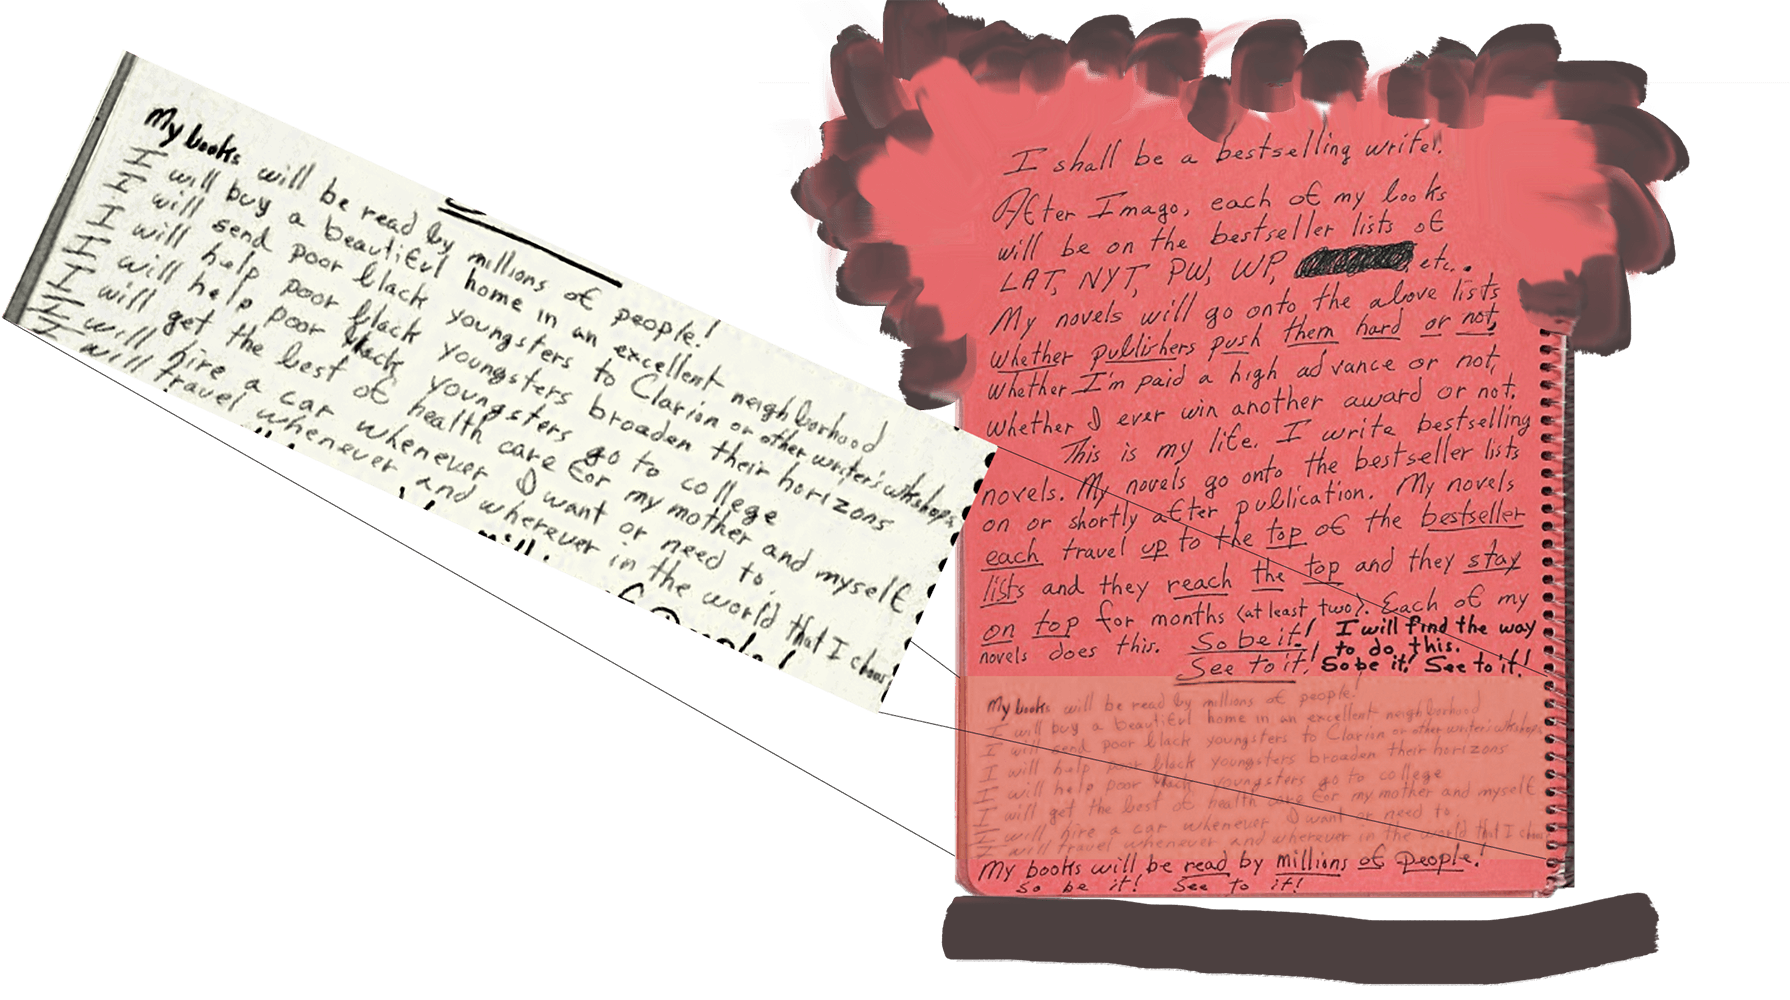 My books will be read by millions of people!
I will buy a beautiful home in an excellent neighborhood
I will send poor black youngsters to Clarion or other writer's wkshops
I will help poor black youngsters broaden their horizons
I will help poor black youngsters go to college
I will get the best of health care for my mother and myself
I will hire a car whenever I want or need to.
I will travel whenever and wherever in the world that I choose
I shall be a bestselling writer.
After Imago, each of my books
will be on the bestseller lists of
LAT, NYT, PW, WP, etc.
My novels will go onto the above lists
whether publishers push them hard or not,
whether I'm paid a high advance or not,
whether I ever win another award or not.
This is my life. I write bestselling
novels. My novels go onto the bestseller lists
on or shortly after publication. My novels
each travel up to the top of the bestseller
lists and they reach the top and they stay
on top for months (at least two). Each of my
novels does this. So be it! I will find the way
to do this.
See to it! So be it! See to it!
My books will be read by millions of people!
I will buy a beautiful home in an excellent neighborhood
I will send poor black youngsters to Clarion or other writer's wkshops
I will help poor black youngsters broaden their horizons
I will help poor black youngsters go to college
I will get the best of health care for my mother and myself
I will hire a car whenever I want or need to.
I will travel whenever and wherever in the world that I choose
My books will be read by millions of people!
So be it! See to it!